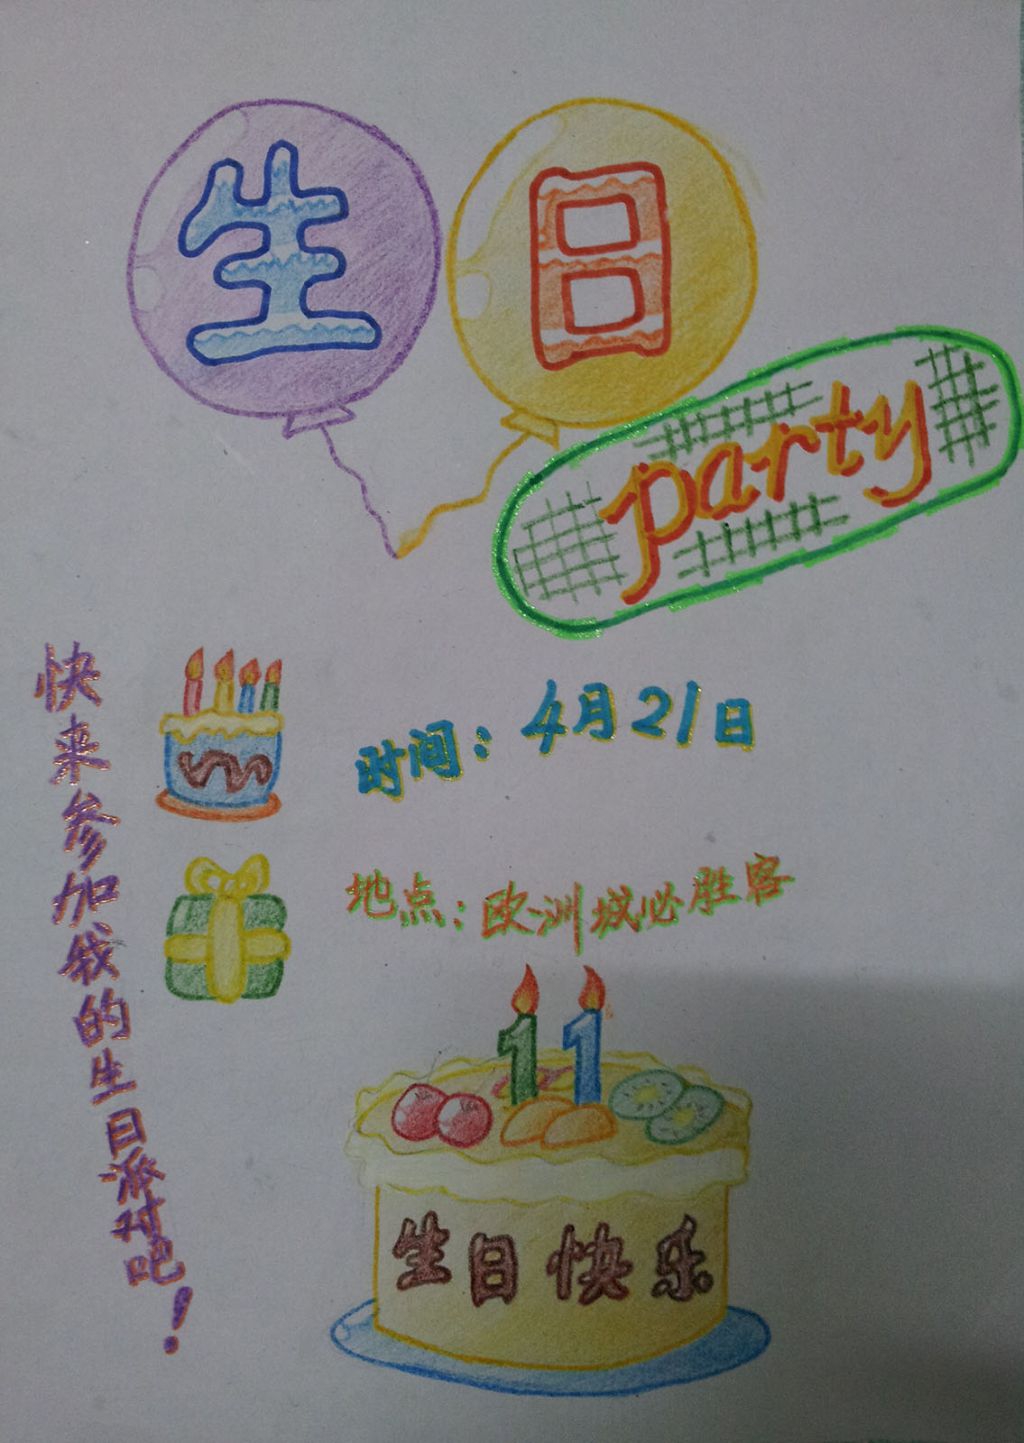 生日
party
快来参加我的生日派对吧！
时间：4月21日
地点：欧洲城必胜客
11
生日快乐